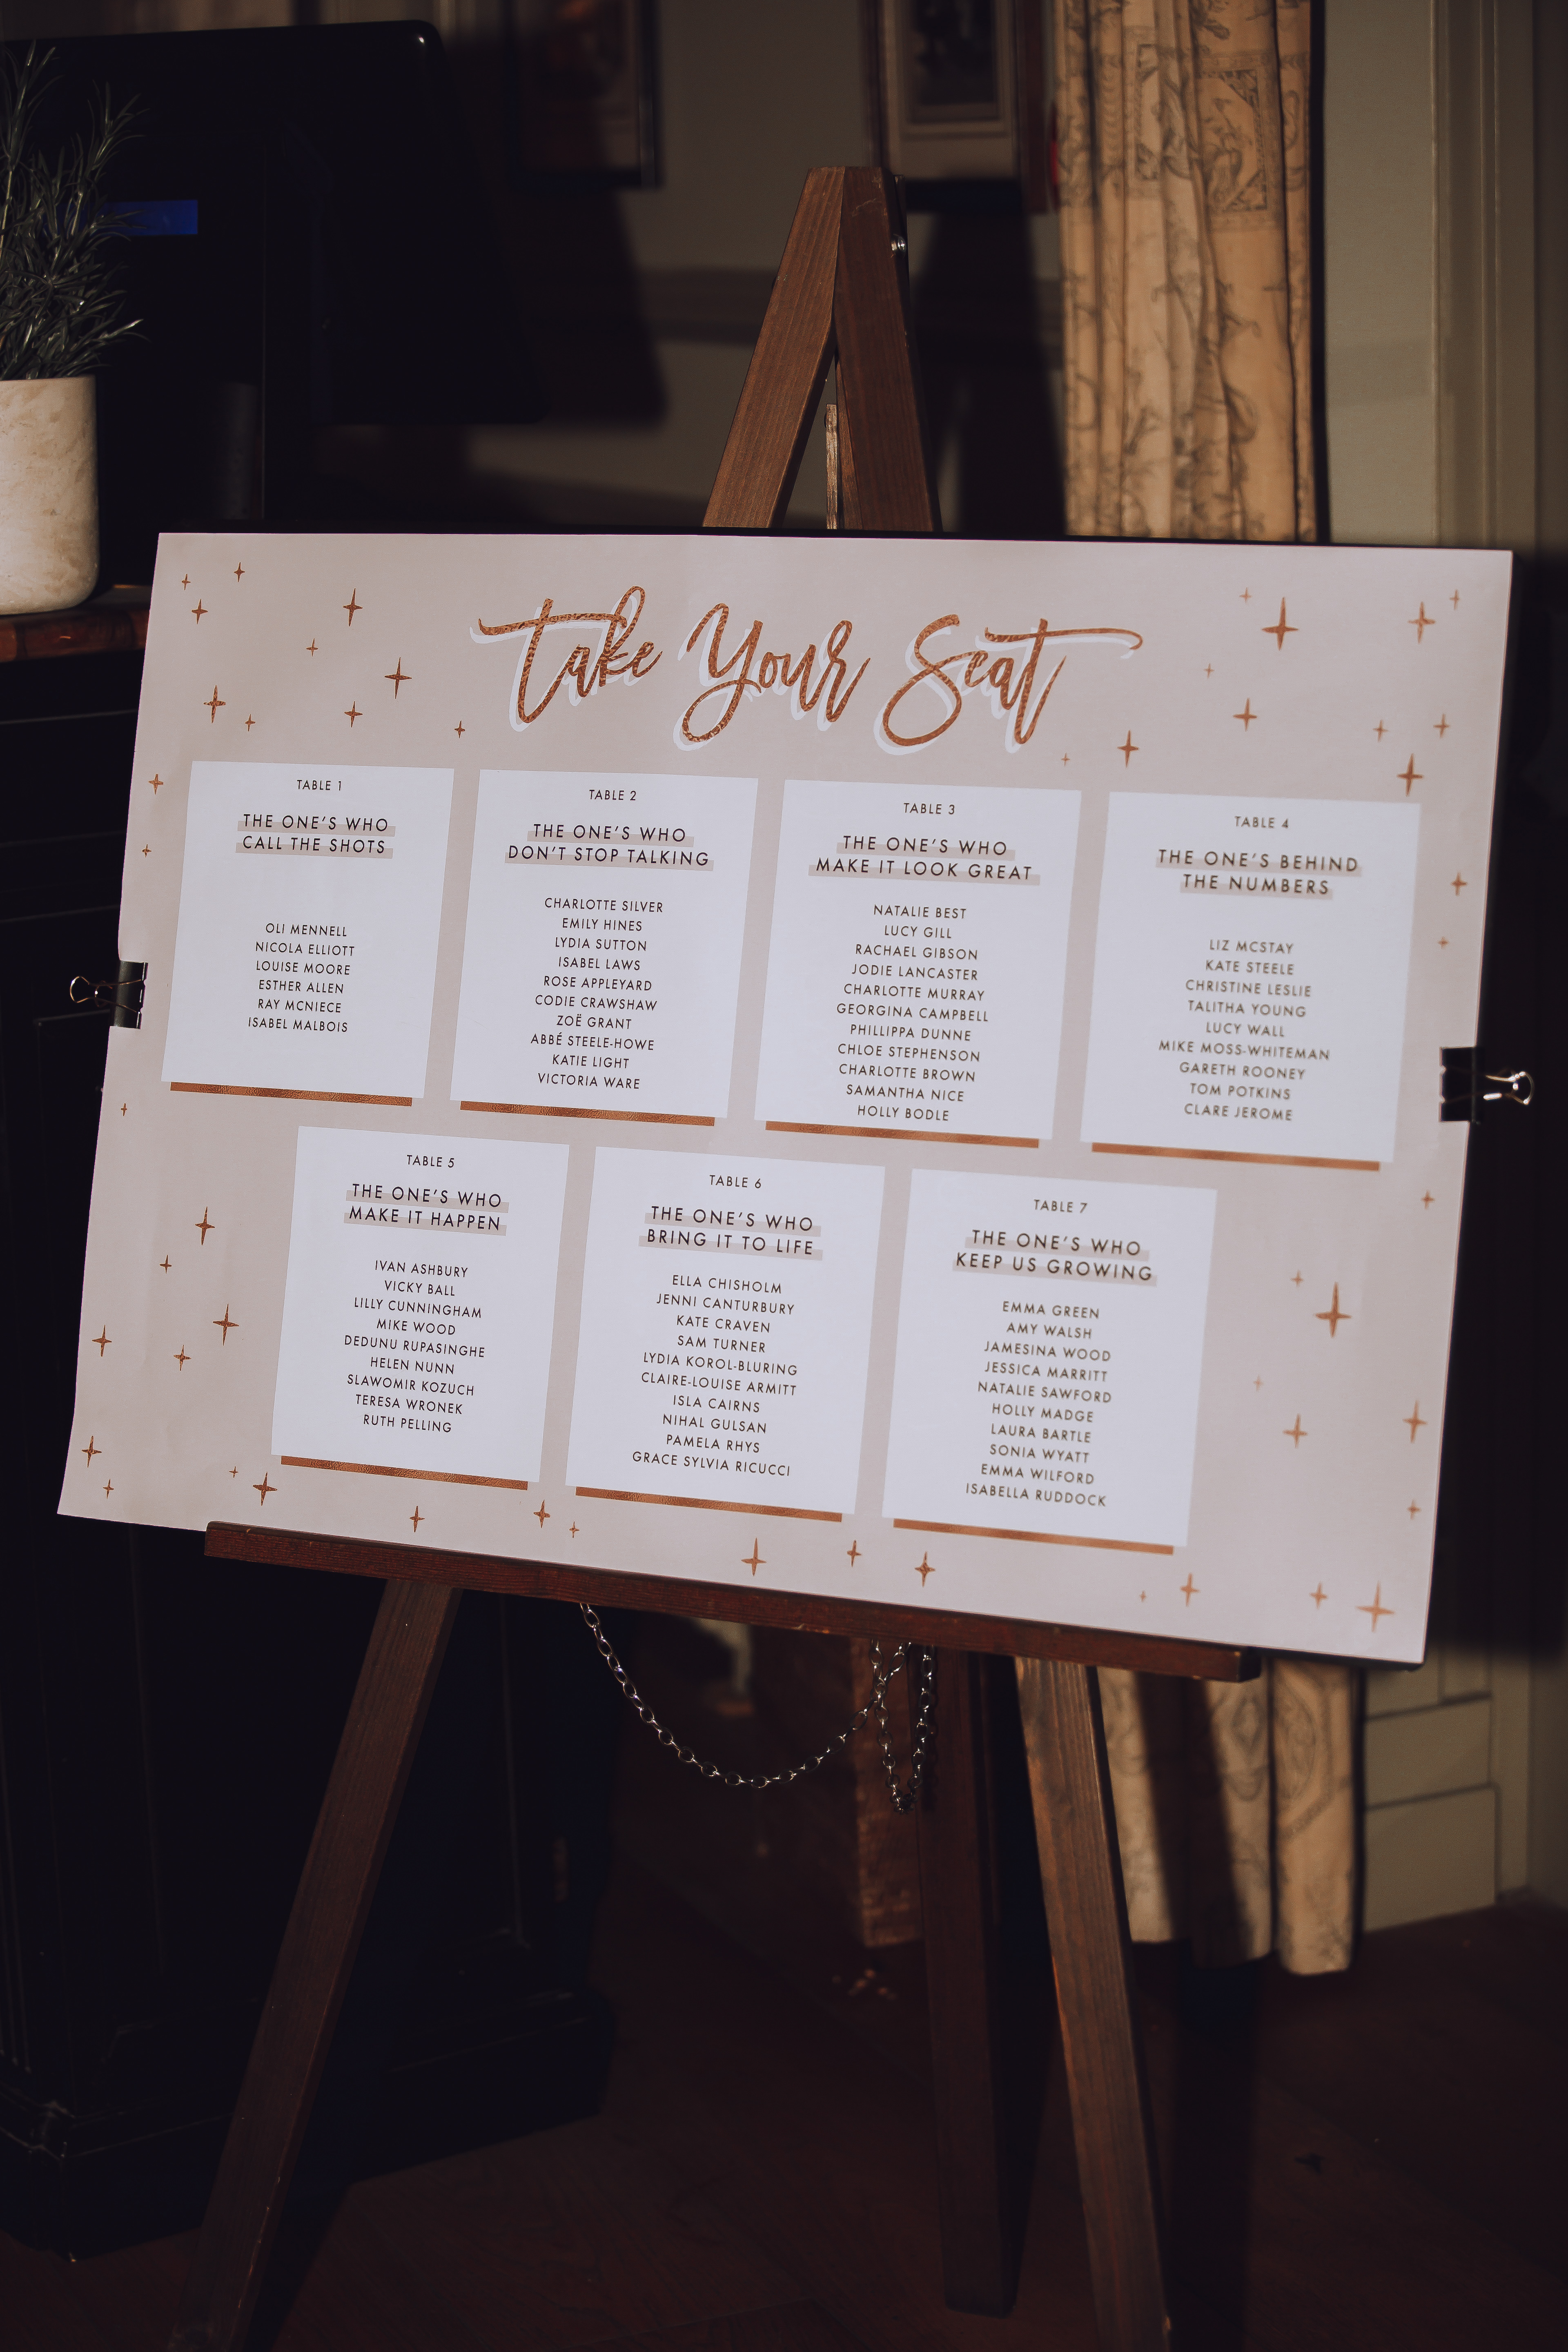 Take Your Seat
TABLE 1
THE ONE'S WHO
CALL THE SHOTS
OLI MENNELL
NICOLA ELLIOTT
LOUISE MOORE
ESTHER ALLEN
RAY MCNIECE
ISABEL MALBOIS
TABLE 2
THE ONE'S WHO
DON'T STOP TALKING
CHARLOTTE SILVER
EMILY HINES
LYDIA SUTTON
ISABEL LAWS
ROSE APPLEYARD
CODIE CRAWSHAW
ZOË GRANT
ABBÉ STEELE-HOWE
KATIE LIGHT
VICTORIA WARE
TABLE 3
THE ONE'S WHO
MAKE IT LOOK GREAT
NATALIE BEST
LUCY GILL
RACHAEL GIBSON
JODIE LANCASTER
CHARLOTTE MURRAY
GEORGINA CAMPBELL
PHILLIPPA DUNNE
CHLOE STEPHENSON
CHARLOTTE BROWN
SAMANTHA NICE
HOLLY BODLE
TABLE 4
THE ONE'S BEHIND
THE NUMBERS
LIZ MCSTAY
KATE STEELE
CHRISTINE LESLIE
TALITHA YOUNG
LUCY WALL
MIKE MOSS-WHITEMAN
GARETH ROONEY
TOM POTKINS
CLARE JEROME
TABLE 5
THE ONE'S WHO
MAKE IT HAPPEN
IVAN ASHBURY
VICKY BALL
LILLY CUNNINGHAM
MIKE WOOD
DEDUNU RUPASINGHE
HELEN NUNN
SLAWOMIR KOZUCH
TERESA WRONEK
RUTH PELLING
TABLE 6
THE ONE'S WHO
BRING IT TO LIFE
ELLA CHISHOLM
JENNI CANTURBURY
KATE CRAVEN
SAM TURNER
LYDIA KOROL-BLURING
CLAIRE-LOUISE ARMITT
ISLA CAIRNS
NIHAL GULSAN
PAMELA RHYS
GRACE SYLVIA RICUCCI
TABLE 7
THE ONE'S WHO
KEEP US GROWING
EMMA GREEN
AMY WALSH
JAMESINA WOOD
JESSICA MARRITT
NATALIE SAWFORD
HOLLY MADGE
LAURA BARTLE
SONIA WYATT
EMMA WILFORD
ISABELLA RUDDOCK